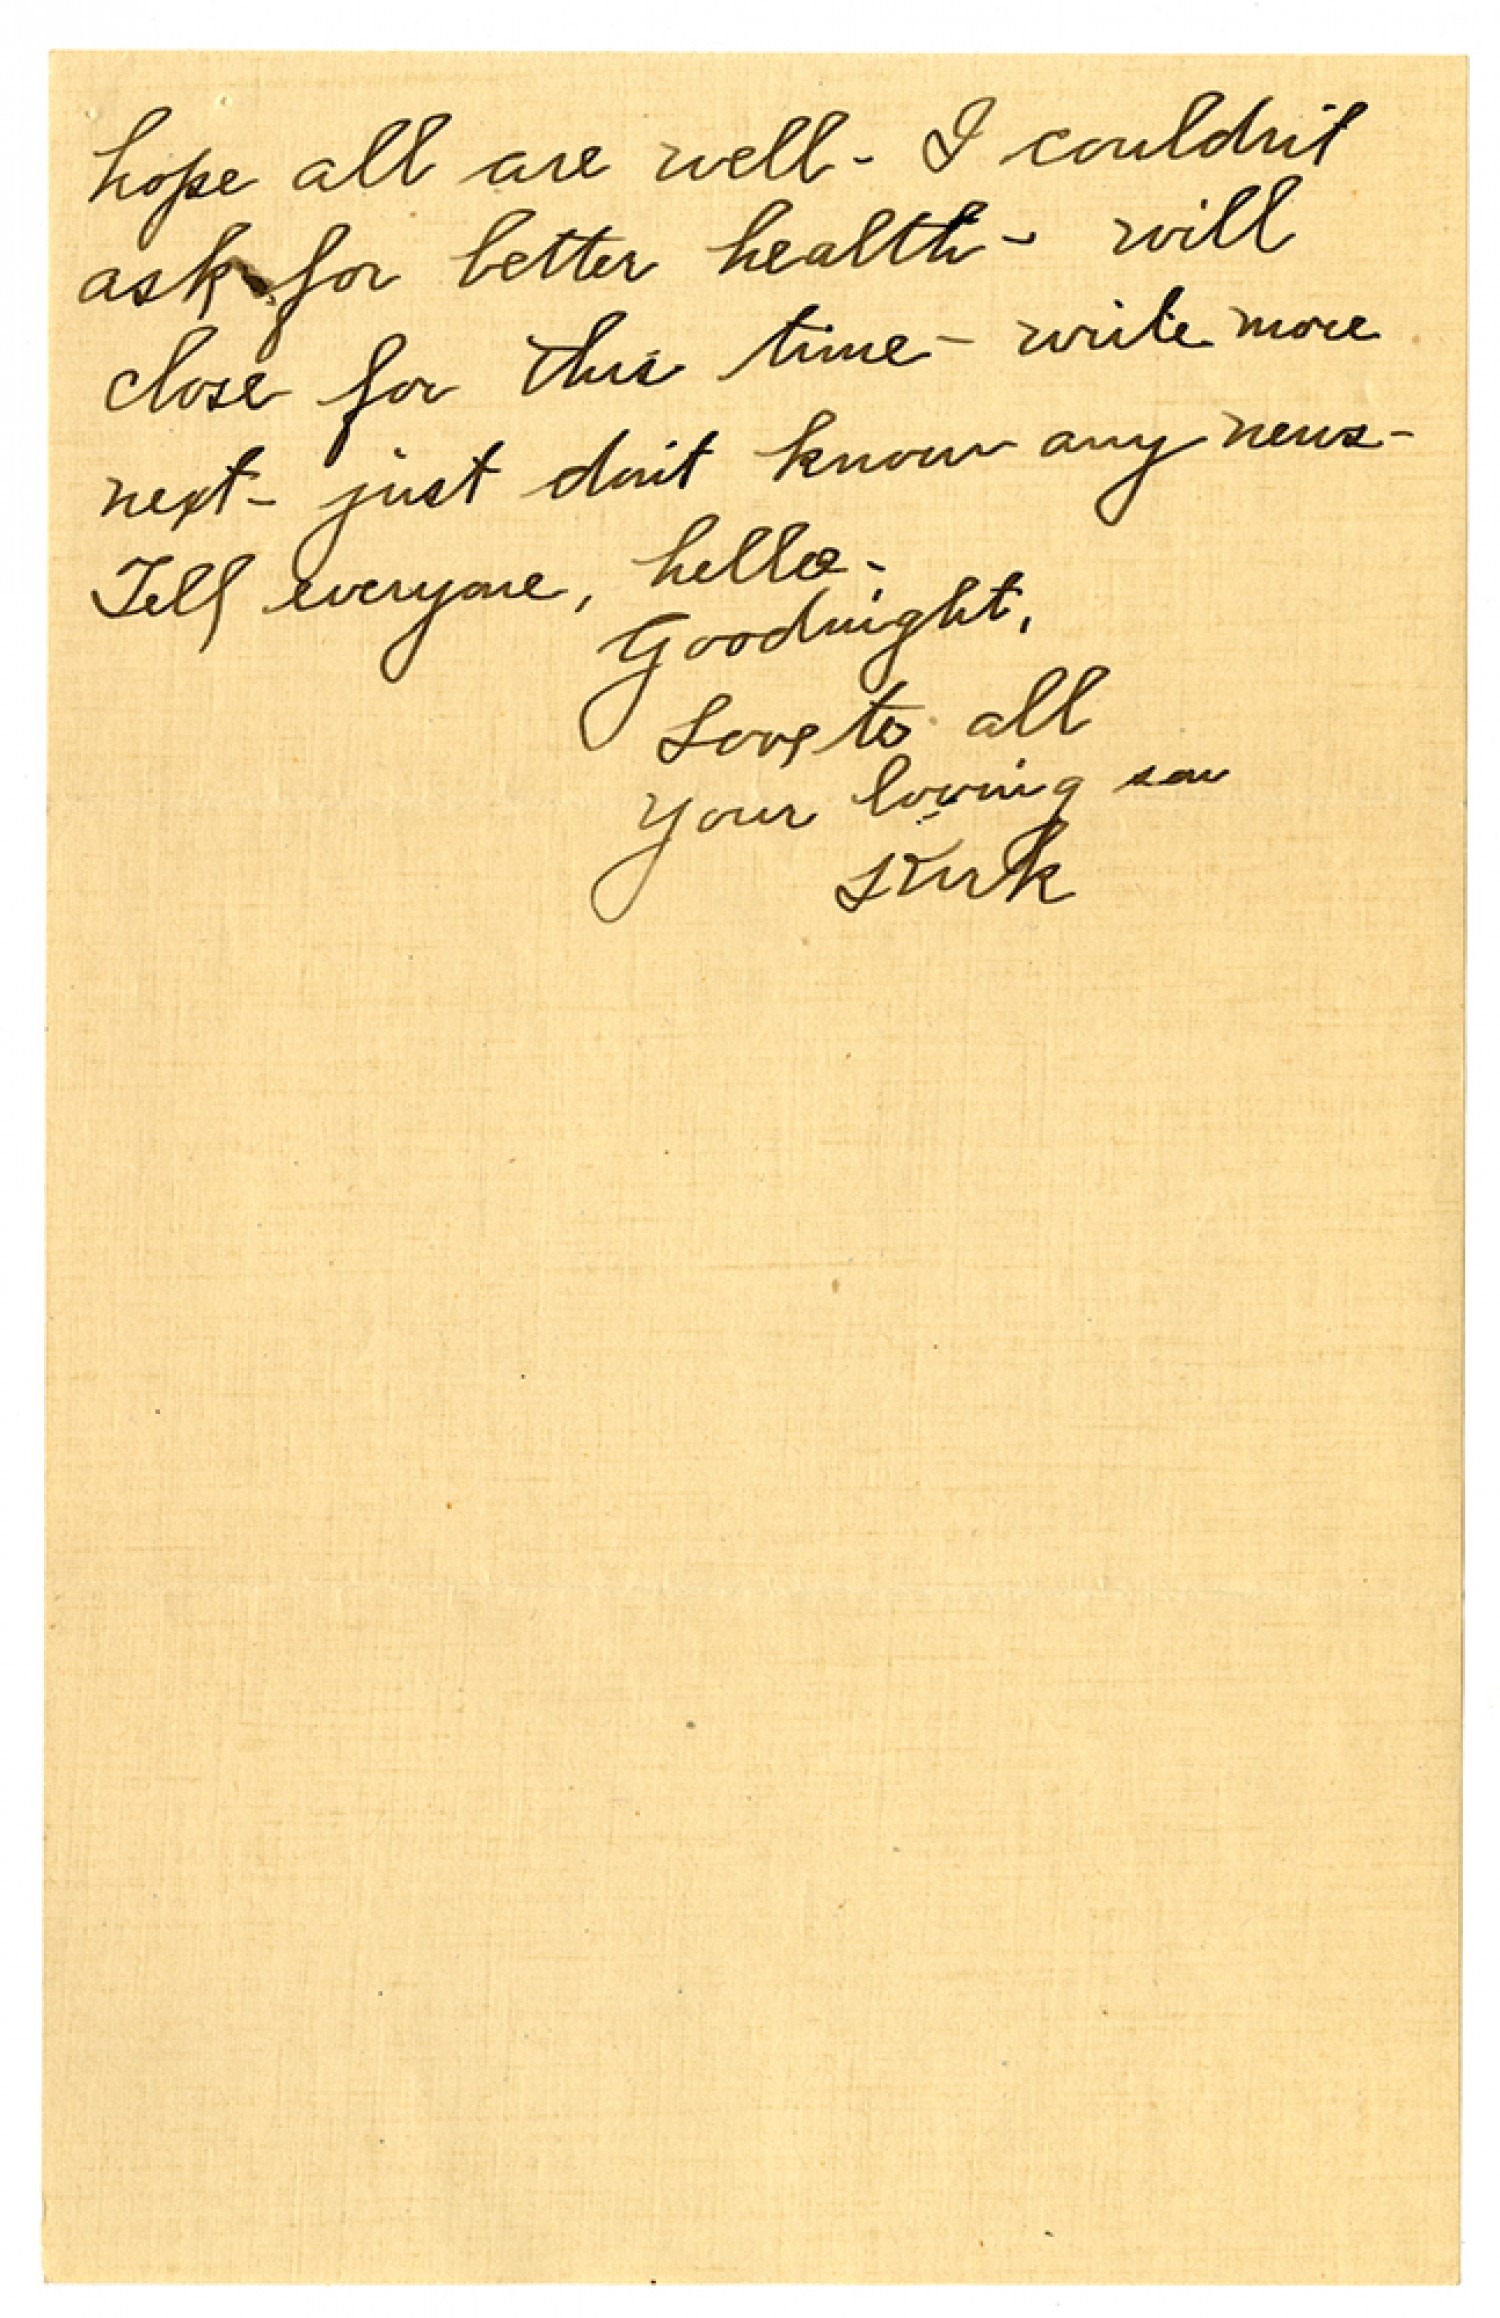 hope all are well - I couldn't
ask for better health - will
close for this time - write more
next - just don't know any news -
Tell everyone, hello -
Goodnight,
Love to all
Your loving son
Kirk